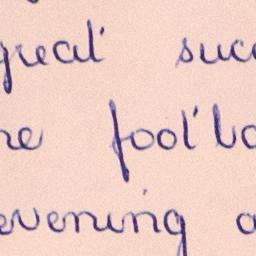 great suc
re footba
evening a